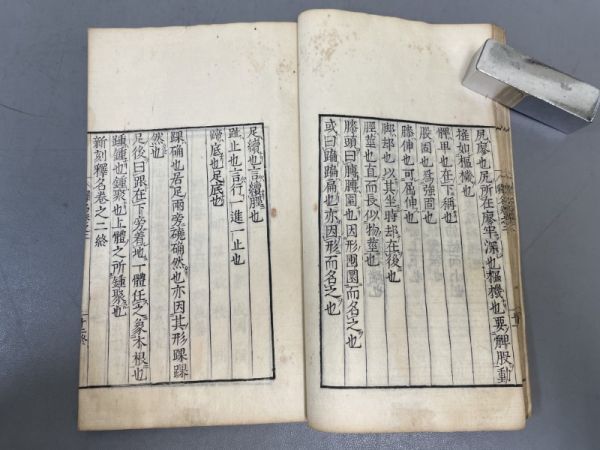 尻廖也尻所在廖牢深也樞機也要髀股動
搖如樞機也
髀卑也在下稱也
股固也爲強固也
膝伸也可屈伸也
脚却也以其坐時却在後也
脛莖也直而長似物莖也
膝頭曰膞膞團也因形團圓而名之也
或曰蹁蹁扁也亦因形而名之也
足續也言續脛也
趾止也言行一進一止也
蹄底也足底也
踝确也居足兩旁磽确然也亦因其形踝踝
然也
足後曰跟在下旁着地一體任之象木根也
踵鍾也鍾聚也上體之所鍾聚也
新刻釋名卷之二終